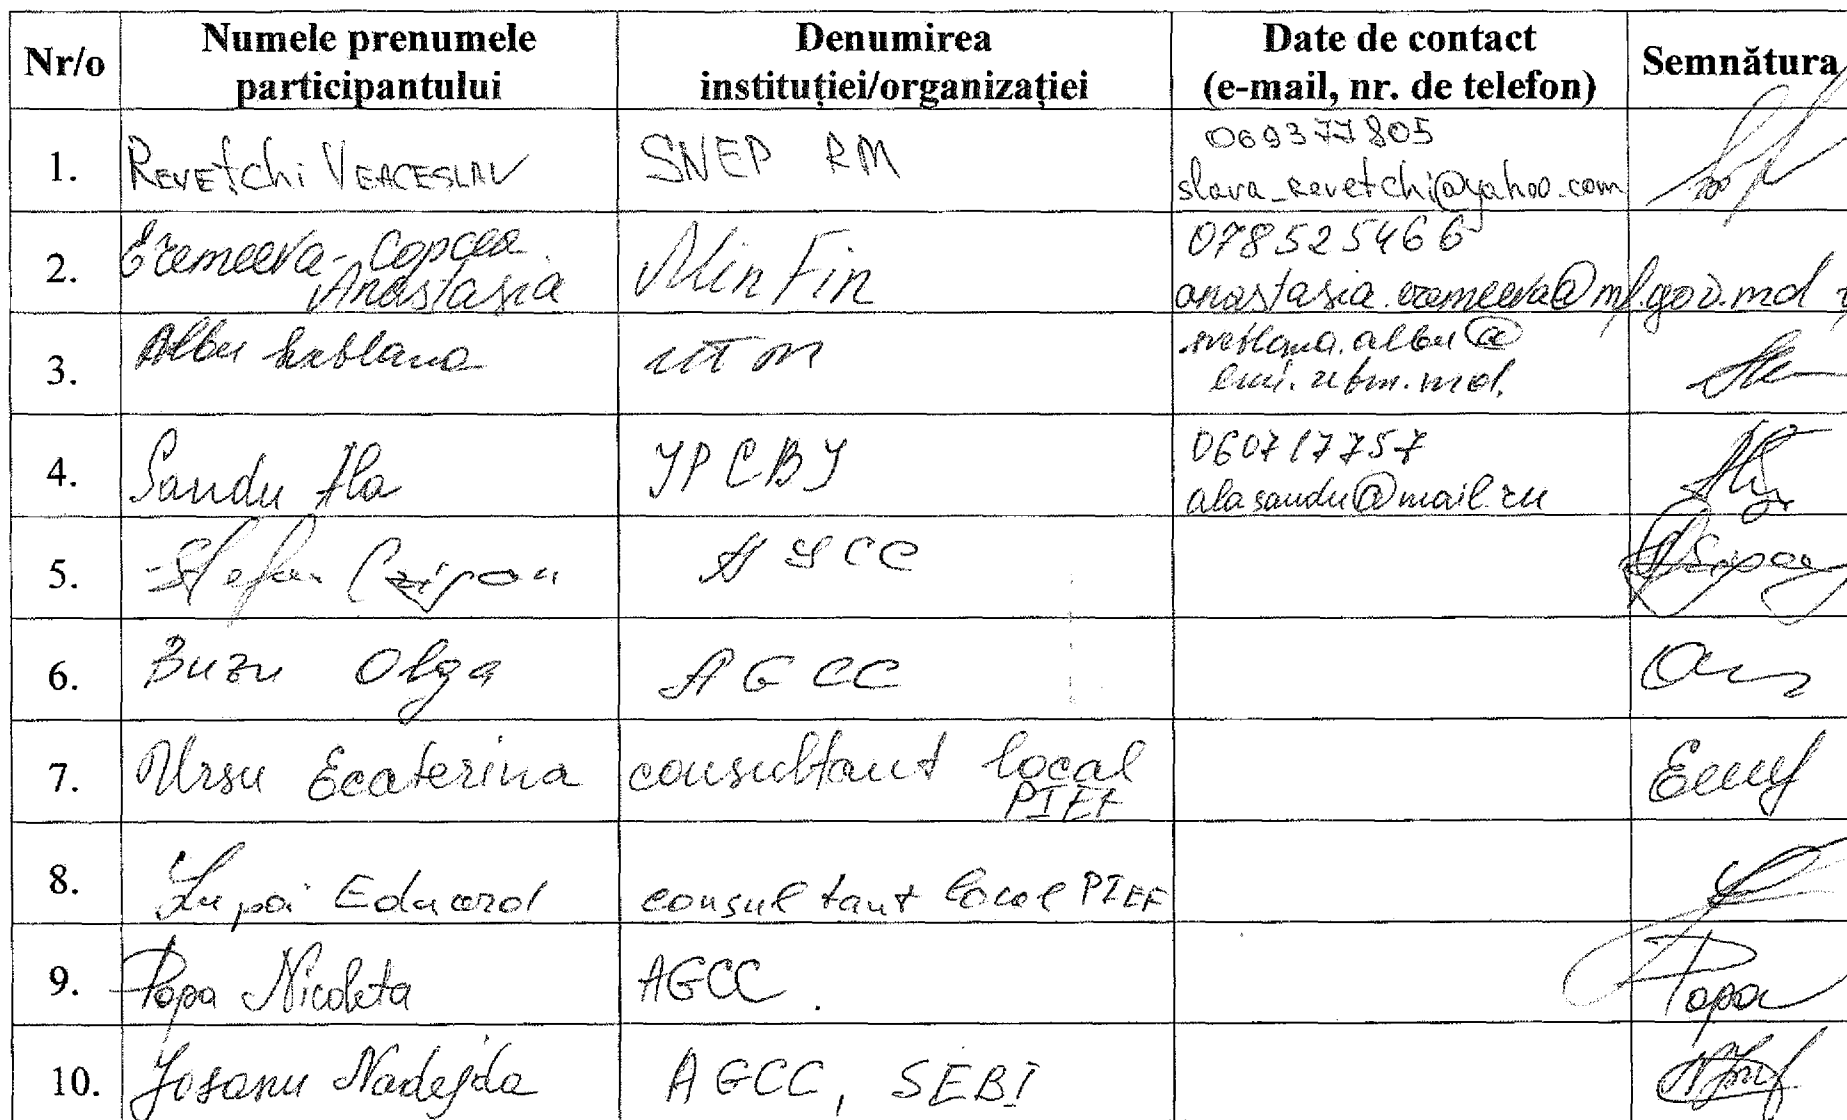 Nr/o
Numele prenumele
participantului
Denumirea
instituției/organizației
Date de contact
(e-mail, nr. de telefon)
Semnătura
1.
Revetchi Veaceslav
SNEP RM
069377805
slava_revetchi@yahoo.com
2.
Eremeeva-Copcea
Anastasia
MinFin
078525466
anastasia.eremeeva@mf.gov.md
3.
Albu Svetlana
UTM
svetlana.albu@
emi.utm.md.
4.
Sandu Ala
IPCBI
060717757
alasandu@mail.ru
5.
Stefan
AGCC
6.
Buzu Olga
AGCC
7.
Ursu Ecaterina
consultant local
PIEF
8.
Lupai Eduard
consultant local PIEF
9.
Popa Nicoleta
AGCC.
Popa
10.
Josanu Nadejda
AGCC, SEBI